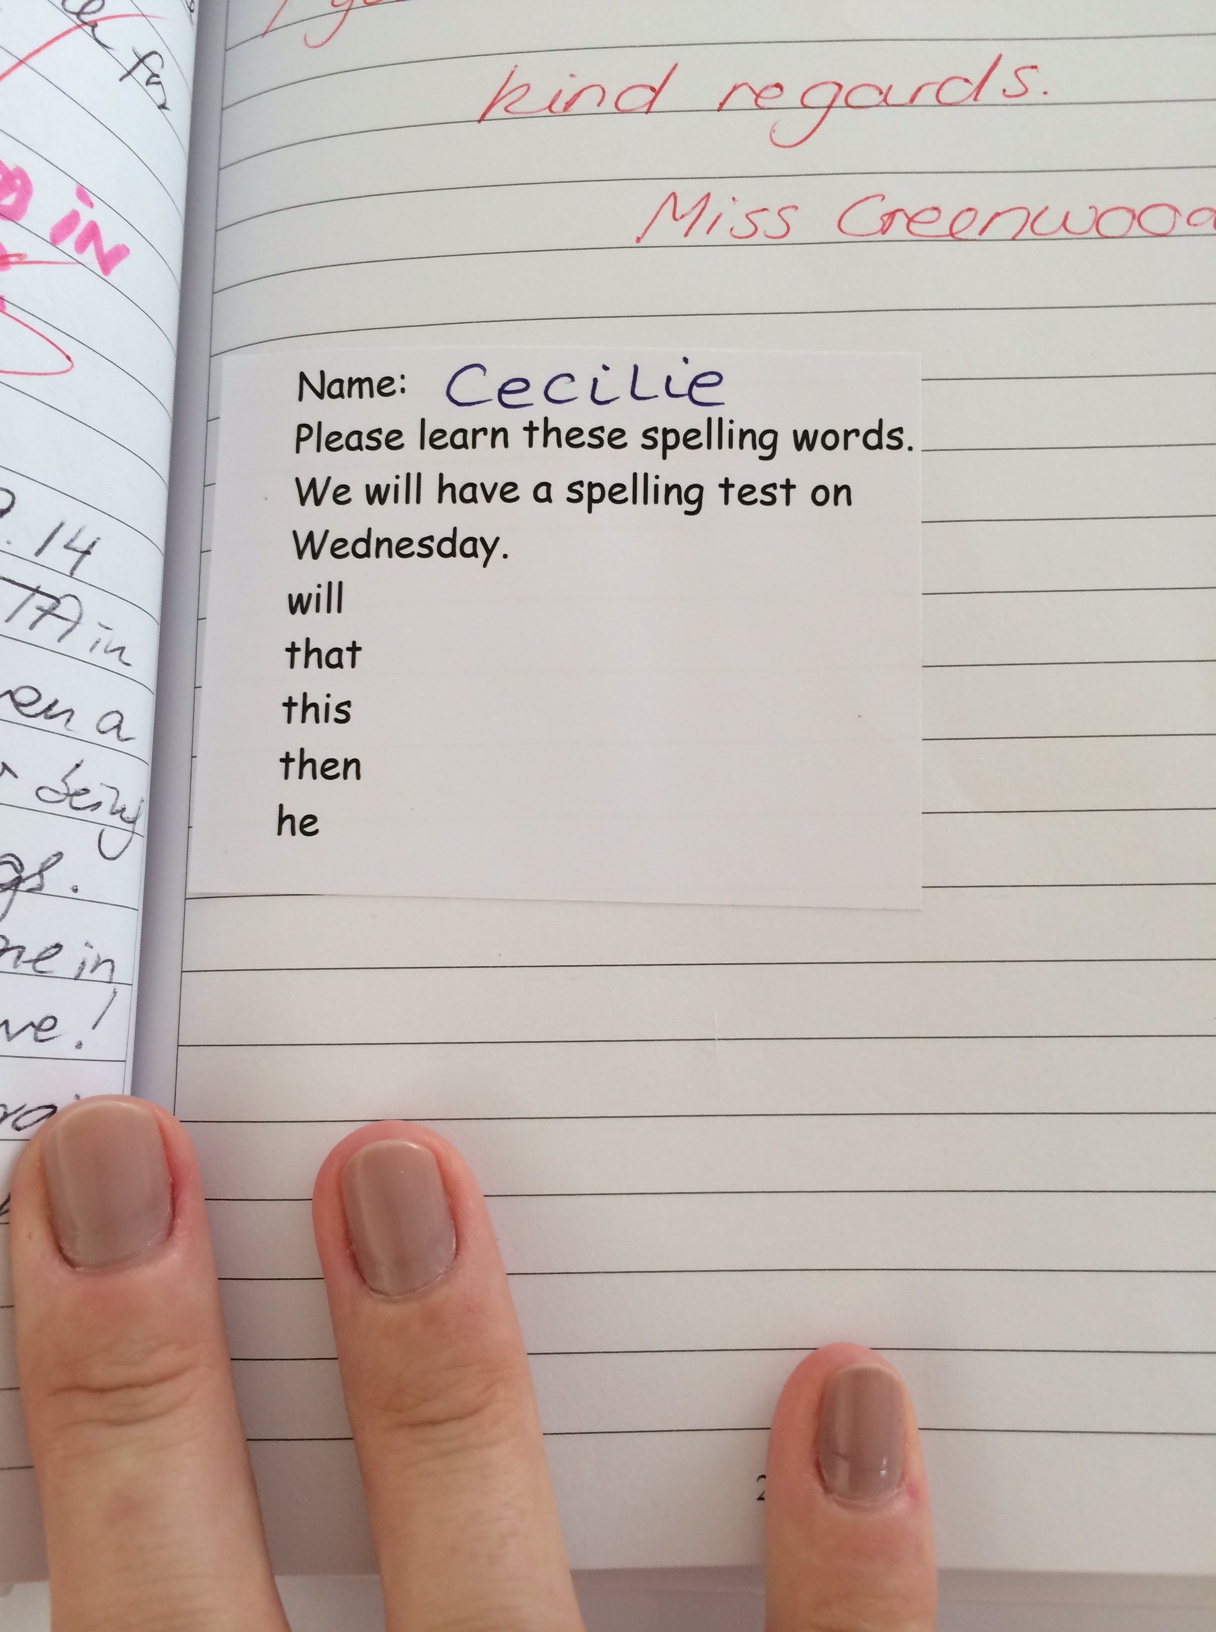 for
IN
14
TA in
en a
being
me in
ve!
kind regards.
Miss Greenwood
Name: Cecilie
Please learn these spelling words.
We will have a spelling test on
Wednesday.
will
that
this
then
he
2